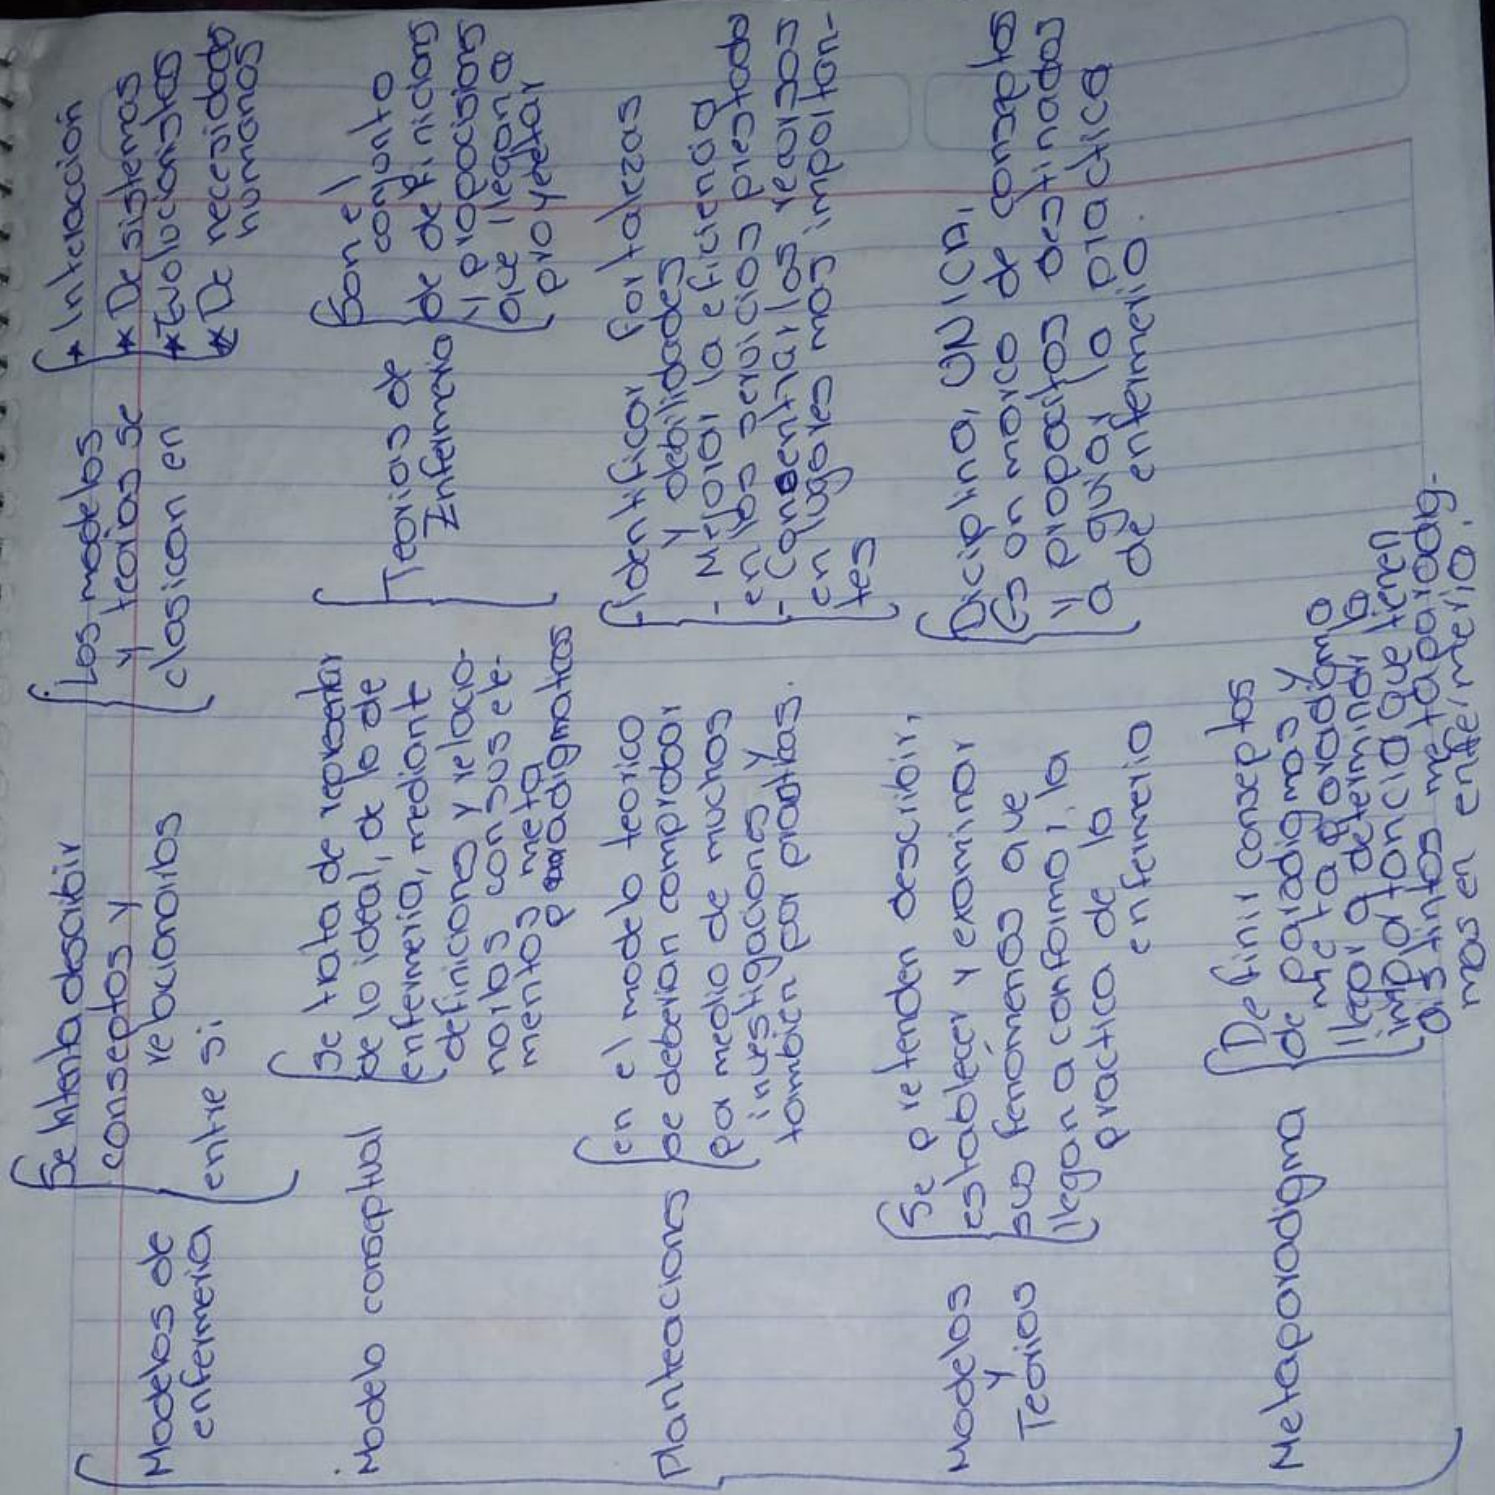 Modelos de
enfermeria
Se intenta describir
conseptos y
relacionarlos
entre si
Los modelos
y teorias se
clasican en
* Interaccion
* De sistemas
* Evolucionistas
* De necesidades
humanas
Modelo conseptual
se trata de representar
de lo ideal, de lo de
enfermeria, mediante
definiciones y relacio-
narlas con sus ele-
mentos meta
paradigmaticos
Teorias de
Enfermeria
Son el
conjunto
de definicions
y propocisions
que llegan a
proyetar
Planteaciones
en el modelo teorico
se deberian comprobar
por medio de muchas
investigaciones y
tambien por practicas.
Identificar fortalezas
y debilidades
- Mejorar la eficiencia
en los servicios prestado
- Consentrar los recursos
en lugares mas importan-
tes
Modelos
y
Teorias
Se pretenden describir,
establecer y examinar
sus fenomenos que
llegan a conformar la
practica de la
enfermeria
Diciplina, UNICA,
Es un marco de conseptos
y propocitos destinados
a guiar la practica
de enfermeria.
Metaparadigma
Definir conseptos
de paradigmas y
metaparadigma
llegar a determinar la
importancia que tienen
distintos metaparadig-
mas en enfermeria.